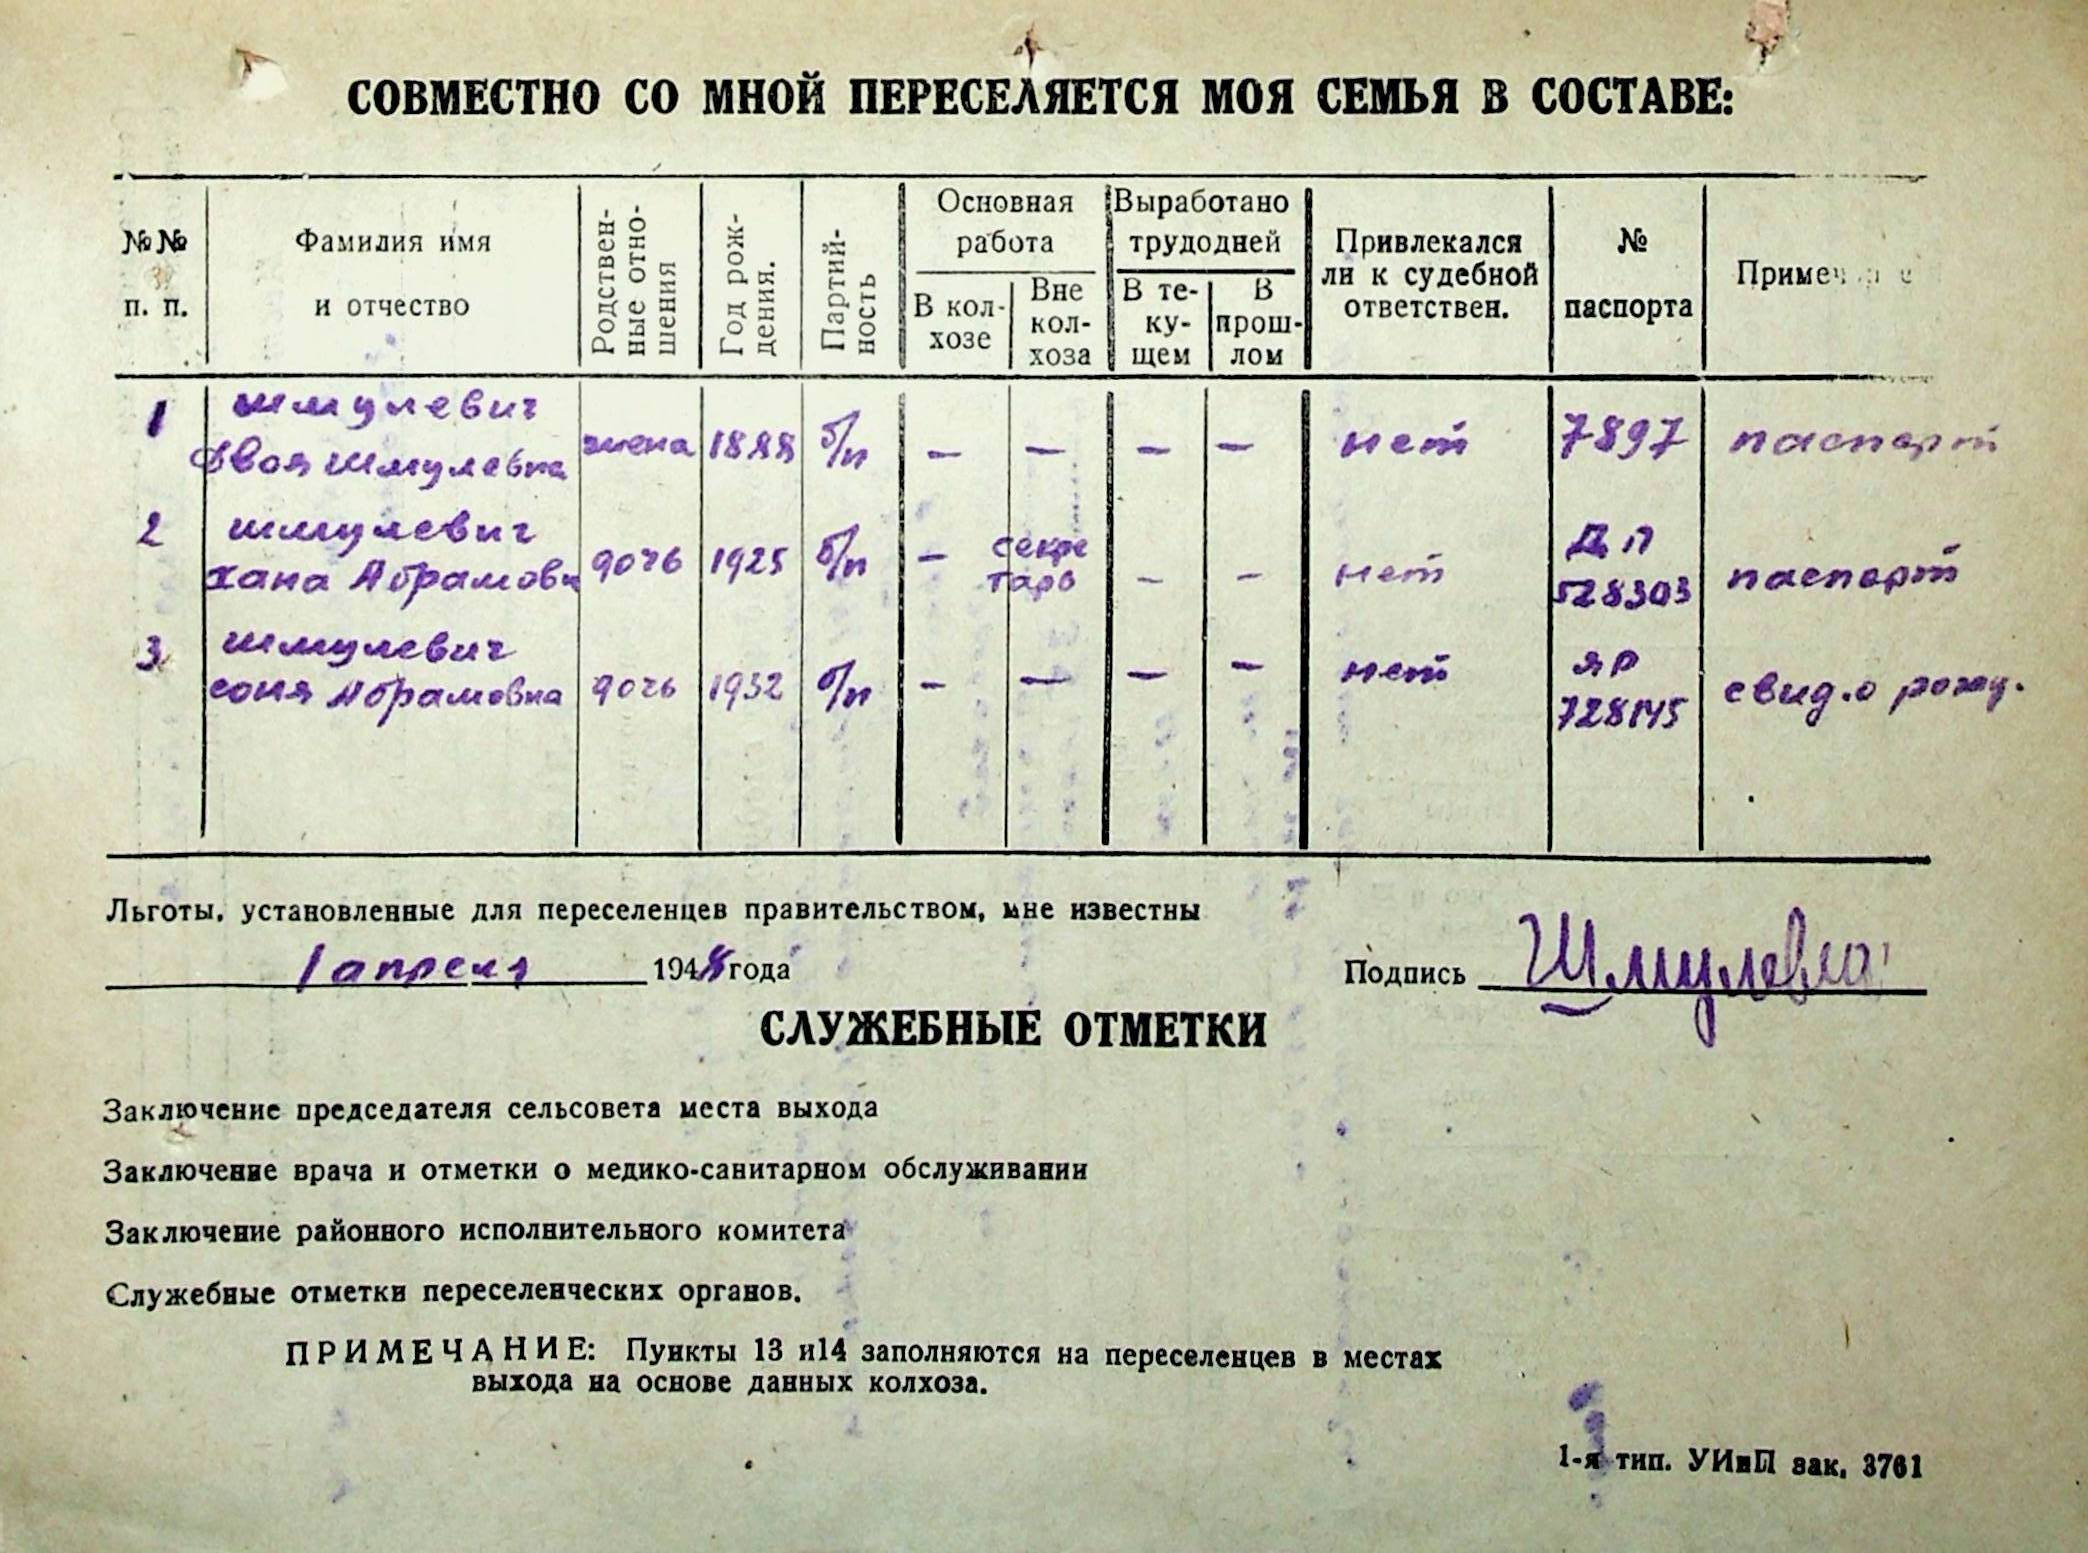 СОВМЕСТНО СО МНОЙ ПЕРЕСЕЛЯЕТСЯ МОЯ СЕМЬЯ В СОСТАВЕ:
№№ п. п.
Фамилия имя и отчество
Родствен-ные отно-шения
Год рож-дения.
Партий-ность
Основная работа
В кол-хозе
Вне кол-хоза
Выработано трудодней
В те-ку-щем
В прош-лом
Привлекался ли к судебной ответствен.
№ паспорта
Примеч
1 Шмулевич Двоя Шмулевна жена 1888 б/п — — — — нет 7897 паспорт
2 Шмулевич Хана Абрамовн дочь 1925 б/п — секретарь — — нет ДП 528303 паспорт
3 Шмулевич Соня Абрамовна дочь 1932 б/п — — — — нет ЯР 728145 свид. о рожд.
Льготы, установленные для переселенцев правительством, мне известны
1 апреля 1948 года
Подпись Шмулевич
СЛУЖЕБНЫЕ ОТМЕТКИ
Заключение председателя сельсовета места выхода
Заключение врача и отметки о медико-санитарном обслуживании
Заключение районного исполнительного комитета
Служебные отметки переселенческих органов.
ПРИМЕЧАНИЕ: Пункты 13 и14 заполняются на переселенцев в местах
выхода на основе данных колхоза.
1-я тип. УИиП зак. 3761